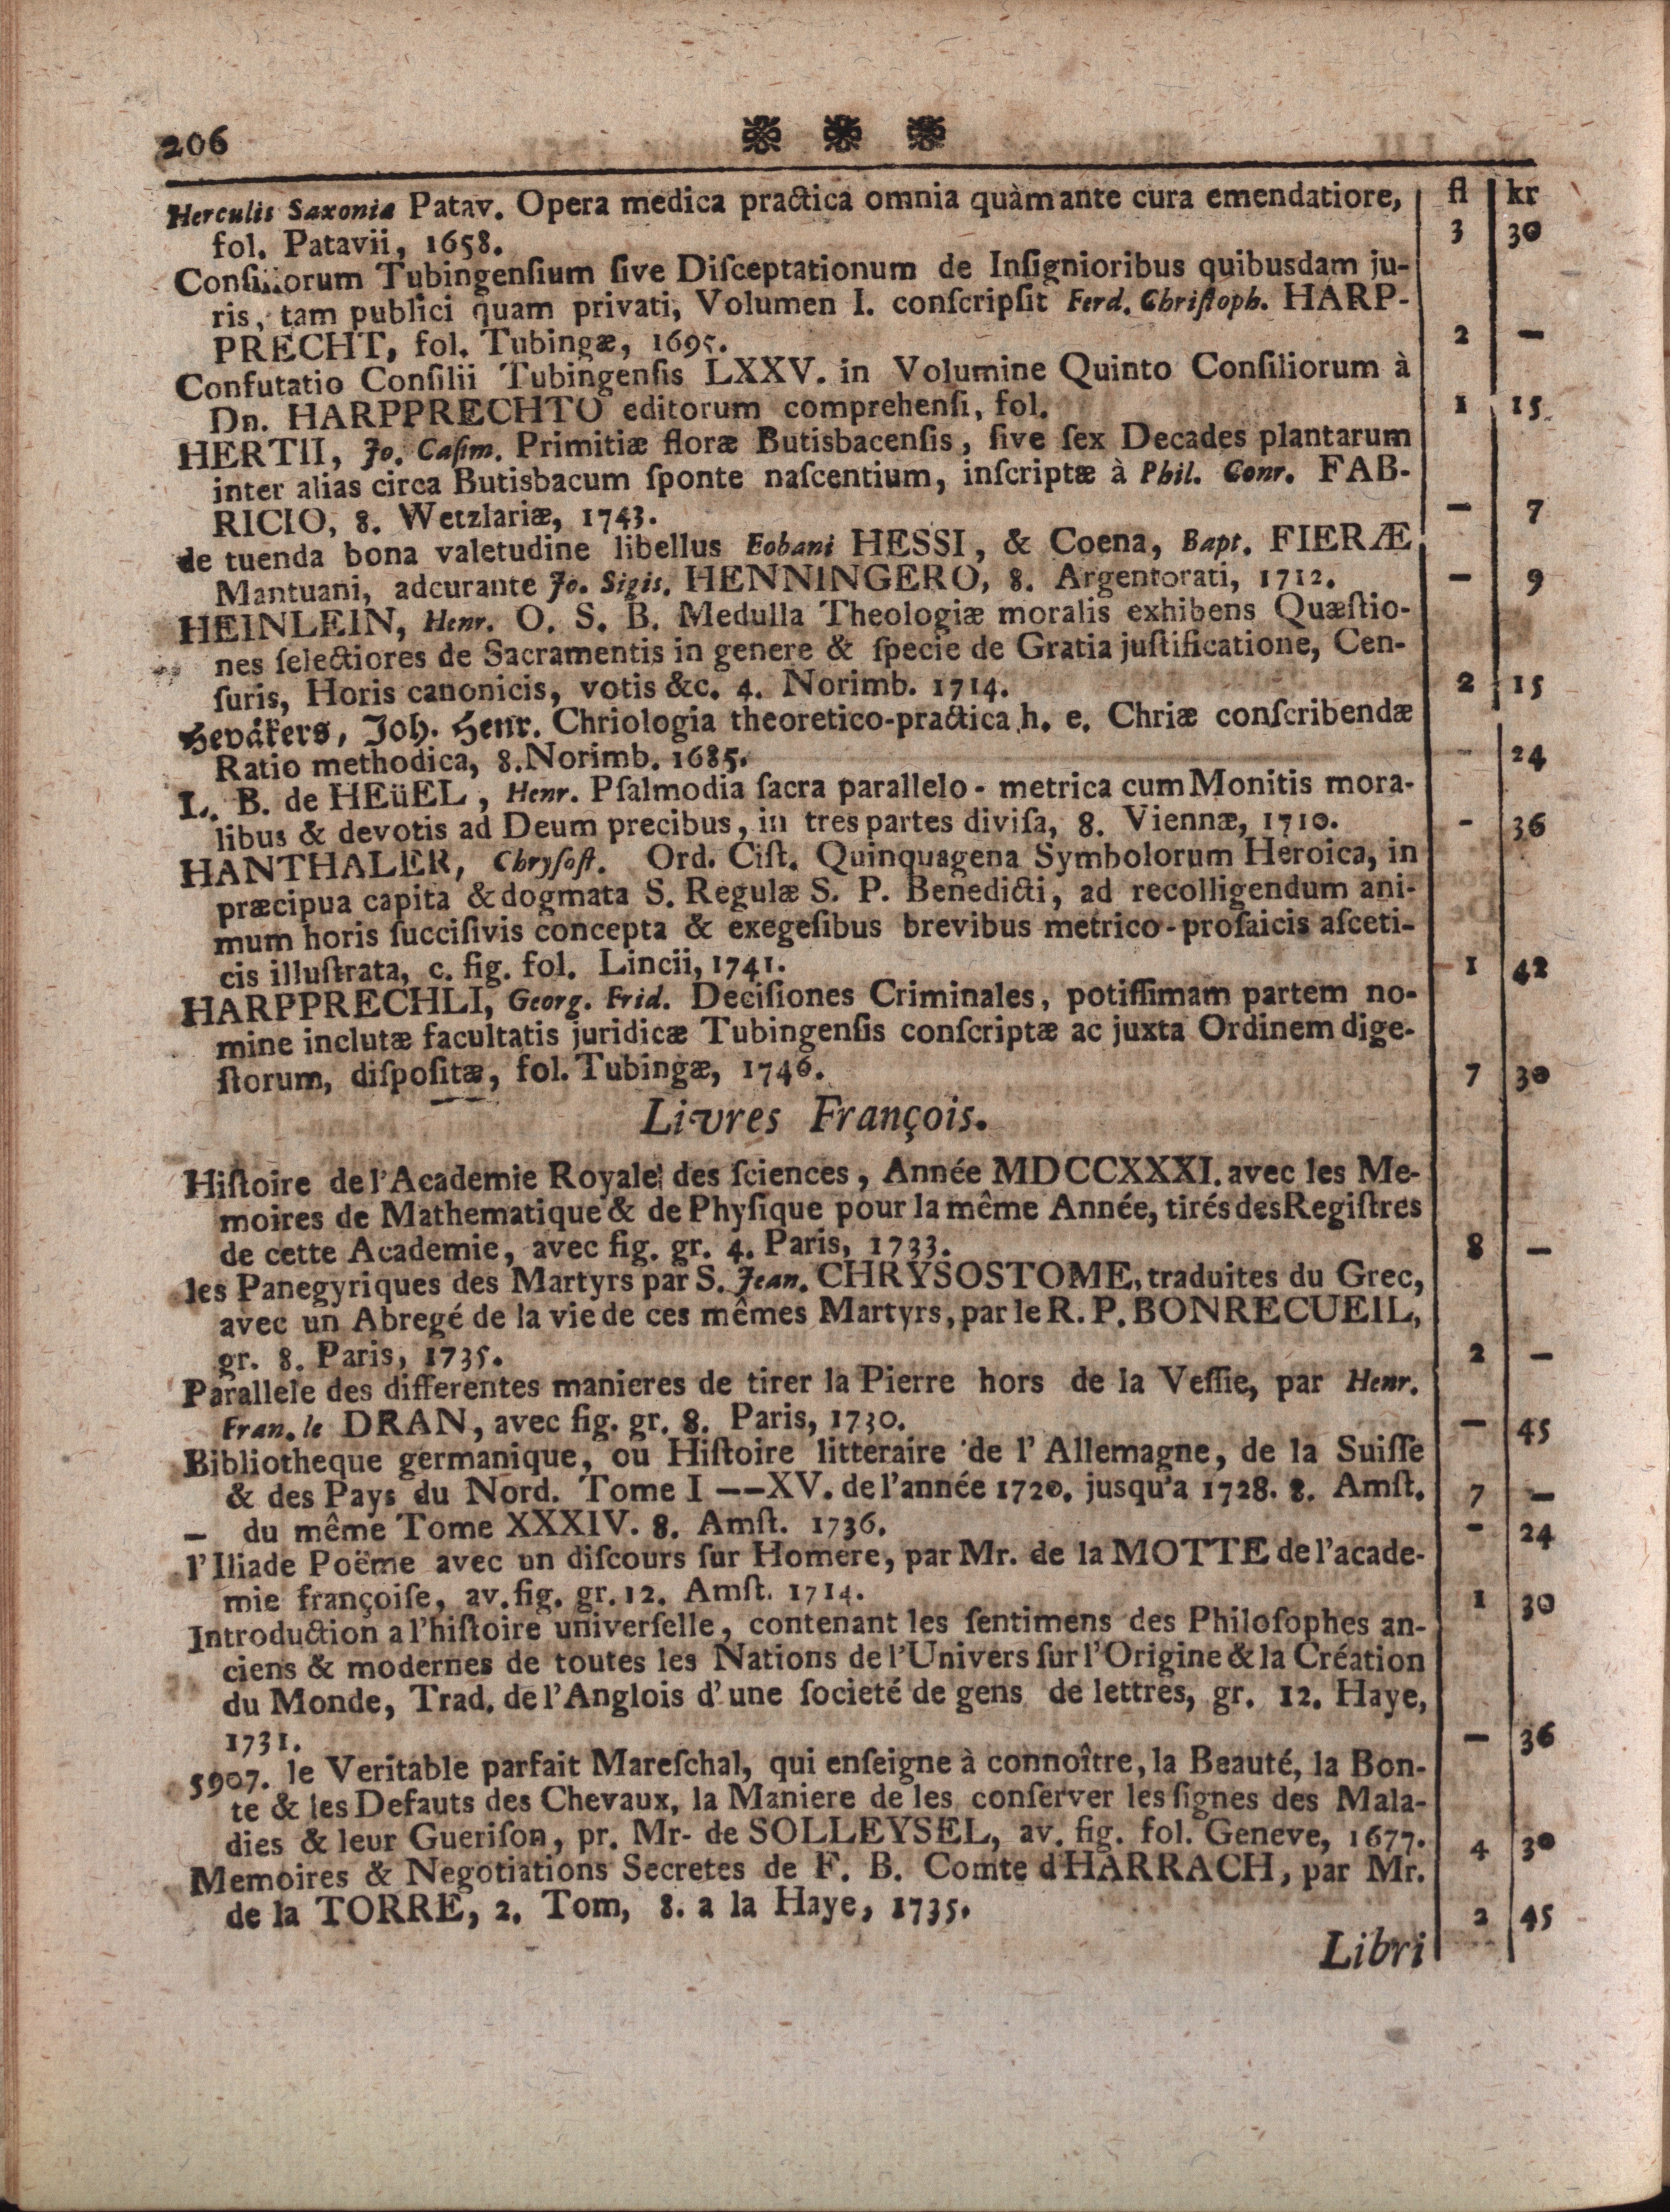 206
fl kr
Herculis Saxonia Patav. Opera medica practica omnia quàmante cura emendatiore,
fol. Patavii, 1658. 3 30
Consiliorum Tubingensium sive Disceptationum de Insignioribus quibusdam ju-
ris, tam publici quam privati, Volumen I. conscripsit Ferd. Christoph. HARP-
PRECHT, fol. Tubingæ, 1695. 2 —
Confutatio Consilii Tubingensis LXXV. in Volumine Quinto Consiliorum à
Dn. HARPPRECHTO editorum comprehensi, fol. 1 15
HERTII, Jo. Casim. Primitiæ floræ Butisbacensis, sive sex Decades plantarum
inter alias circa Butisbacum sponte nascentium, inscriptæ à Phil. Conr. FAB-
RICIO, 8. Wetzlariæ, 1743. — 7
de tuenda bona valetudine libellus Eobani HESSI, & Coena, Bapt. FIERÆ
Mantuani, adcurante Jo. Sigis. HENNINGERO, 8. Argentorati, 1712. — 9
HEINLEIN, Henr. O. S. B. Medulla Theologiæ moralis exhibens Quæstio-
nes selectiores de Sacramentis in genere & specie de Gratia justificatione, Cen-
suris, Horis canonicis, votis &c. 4. Norimb. 1714. 2 15
Hevåkers, Joh. Henr. Chriologia theoretico-practica h. e. Chriæ conscribendæ
Ratio methodica, 8. Norimb. 1685. - 24
L. B. de HEüEL, Henr. Psalmodia sacra parallelo - metrica cum Monitis mora-
libus & devotis ad Deum precibus, in tres partes divisa, 8. Viennæ, 1710. - 36
HANTHALER, Chrysost. Ord. Cist. Quinquagena Symbolorum Heroica, in
præcipua capita & dogmata S. Regulæ S. P. Benedicti, ad recolligendum ani-
mum horis succisivis concepta & exegesibus brevibus metrico-prosaicis asceti-
cis illustrata, c. fig. fol. Lincii, 1741. 1 42
HARPPRECHLI, Georg. Frid. Decisiones Criminales, potissimam partem no-
mine inclutæ facultatis juridicæ Tubingensis conscriptæ ac juxta Ordinem dige-
storum, dispositæ, fol. Tubingæ, 1746. 7 30
Livres François.
Histoire de l'Academie Royale des sciences, Année MDCCXXXI. avec les Me-
moires de Mathematique & de Physique pour la même Année, tirés des Registres
de cette Academie, avec fig. gr. 4. Paris, 1733. 8 —
les Panegyriques des Martyrs par S. Jean. CHRYSOSTOME, traduites du Grec,
avec un Abregé de la vie de ces mêmes Martyrs, par le R. P. BONRECUEIL,
gr. 8. Paris, 1735. 2 —
Parallele des differentes manieres de tirer la Pierre hors de la Vessie, par Henr.
Fran. le DRAN, avec fig. gr. 8. Paris, 1730. — 45
Bibliotheque germanique, ou Histoire litteraire de l' Allemagne, de la Suisse
& des Pays du Nord. Tome I ——XV. de l'année 1720. jusqu'a 1728. 8. Amst. 7 —
— du même Tome XXXIV. 8. Amst. 1736. - 24
l'Iliade Poëme avec un discours sur Homere, par Mr. de la MOTTE de l'acade-
mie françoise, av. fig. gr. 12. Amst. 1714. 1 30
Introduction a l'histoire universelle, contenant les sentimens des Philosophes an-
ciens & modernes de toutes les Nations de l'Univers sur l'Origine & la Création
du Monde, Trad. de l'Anglois d'une societé de gens de lettres, gr. 12. Haye,
1731. — 36
5907. le Veritable parfait Mareschal, qui enseigne à connoître, la Beauté, la Bon-
te & les Defauts des Chevaux, la Maniere de les conserver les signes des Mala-
dies & leur Guerison, pr. Mr- de SOLLEYSEL, av. fig. fol. Geneve, 1677. 4 30
Memoires & Negotiations Secretes de F. B. Comte d HARRACH, par Mr.
de la TORRE, 2. Tom, 8. a la Haye, 1735. 2 45
Libri